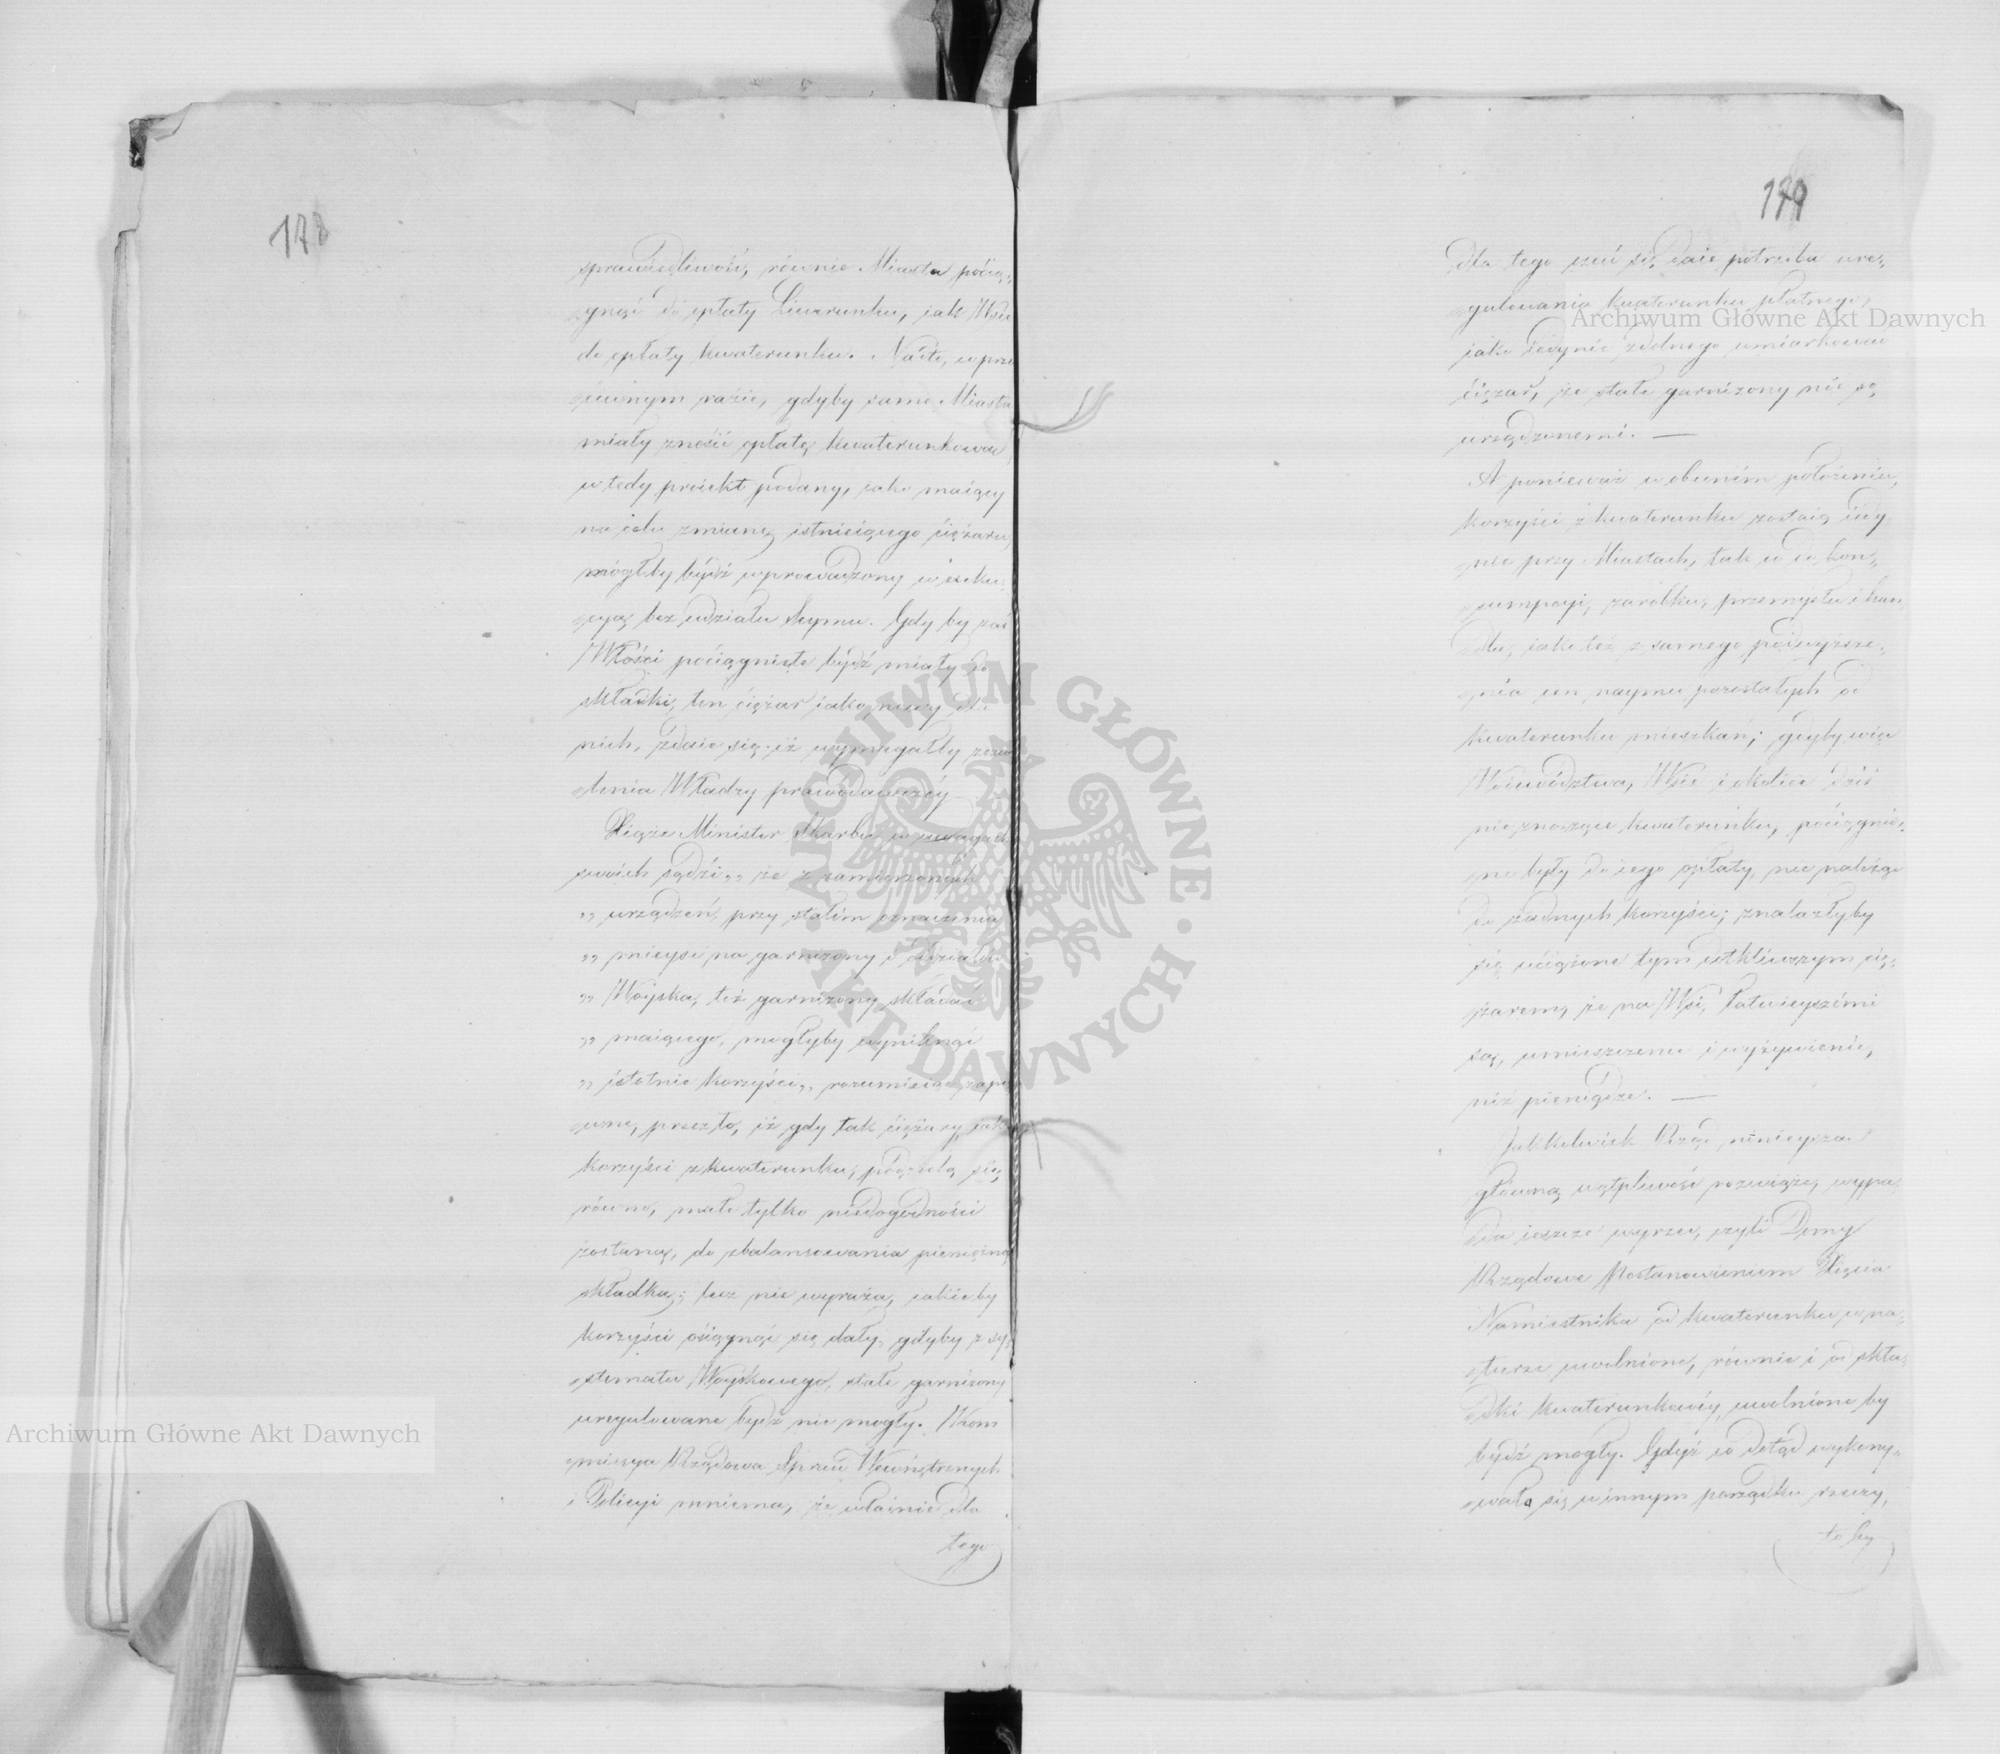 178
sprawiedliwość, równie Miasta pocią-
gnąć do opłaty Liwerunku, iak Wsie
do opłaty kwaterunku. Nadto, w prze
ciwnym razie, gdyby same Miasta
miały znosić opłatę kwaterunkową
wtedy proiekt podany, iako maiący
na celu zmianę istnieiącego ciężaru,
mógłby bydź wprowadzony w exeku-
cyą bez udziału Seymu. Gdy by zaś
Włości pociągnięte bydź miały do
składki, ten ciężar iako nowy dla
nich, zdaie się iż wymagałby zezwo
lenia Władzy prawodawczéy
Xiąże Minister Skarbu, w uwagach
swoich sądzi „ że z zamierzonych
„ urządzeń, przy stałém oznaczeniu
„ mieysc na garnizony i oddziałów
„ Woyska, też garnizony składać
„ maiącego, mogłyby wyniknąć
„ istotnie korzyści „ rozumieiąc zape
wne, przez to, iż gdy tak ciężary, iak
korzyści z kwaterunku, podzielą się
równo, małe tylko niedogodności
zostaną, do zbalansowania pieniężną
składką; lecz nie wyraża, iakieby
korzyści osiągnąć się dały, gdyby z sy-
stematu Woyskowego, stałe garnizony
uregulowane bydź nie mogły. Kom
missya Rządowa Spraw Wewnętrznych
i Policyi mniema, że właśnie dla
tego
179
dla tego czuć się daie potrzeba ure-
gulowania kwaterunku płatnego,
iako iedynie zdolnego umiarkować
ciężar, że stałe garnizony nie są
urządzonemi. —
A ponieważ w obecném położeniu,
korzyści z kwaterunku zostaią iedy
nie przy Miastach, tak co do kon-
sumpcyi, zarobku, przemysłu i han
dlu, iako też z samego podwyższe-
nia cen naymu pozostałych od
kwaterunku mieszkań; gdyby więc
Woiewództwa, Wsie i okolice dziś
nie znoszące kwaterunku, pociągnię-
ne były do iego opłaty, nie należąc
do żadnych korzyści; znalazłyby
się uciążone tym dotkliwszym cię-
żarem, że na Wsi, łatwieyszémi
są, umieszczenie i wyżywienie,
niż pieniądze. —
Jakkolwiek Rząd ninieyszą
główną wątpliwość rozwiąże, wypa
da ieszcze wyrzec, czyli Domy
Rządowe Postanowieniem Xięcia
Namiestnika od kwaterunku w na-
turze uwolnione, równie i od skła-
dki kwaterunkowéy uwolnione by
bydź mogły. Gdyż co dotąd wykony-
wało się w innym porządku rzeczy,
to by
Archiwum Główne Akt Dawnych
Archiwum Główne Akt Dawnych
ARCHIWUM GŁÓWNE · AKT DAWNYCH ·